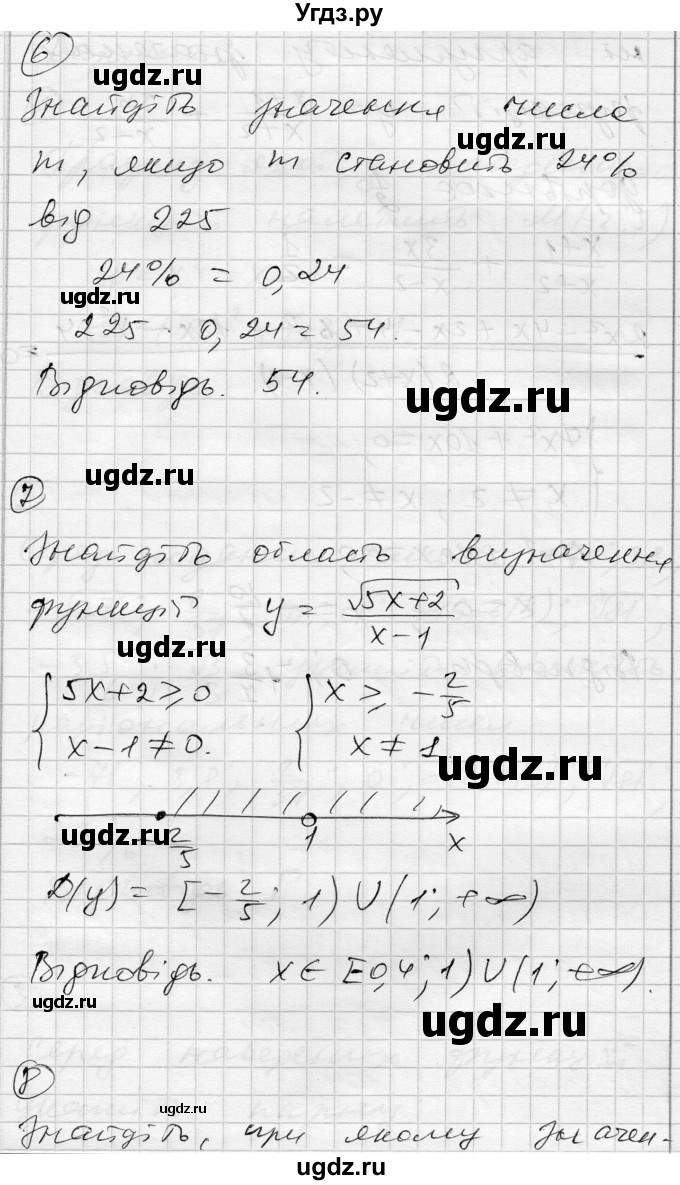 Угдз.ру
6
ugdz.ru
Знайдіть значення числа
ugdz.ru
m, якщо m становить 24%
від 225
24% = 0,24
ugdz.ru
225 · 0,24 = 54.
Відповідь. 54.
ugdz.ru
ugdz.ru
7
Знайдіть область визначення
функції y = √(5x+2)/(x-1)
ugdz.ru
{ 5x+2 ≥ 0 { x ≥ -2/5
x-1 ≠ 0. x ≠ 1
ugdz.ru
ugdz.ru
-2/5 1 x
D(y) = [-2/5; 1) ∪ (1; +∞)
Відповідь. x ∈ [-0,4; 1) ∪ (1; +∞).
ugdz.ru
8
ugdz.ru
Знайдіть, при якому значен-
ugdz.ru